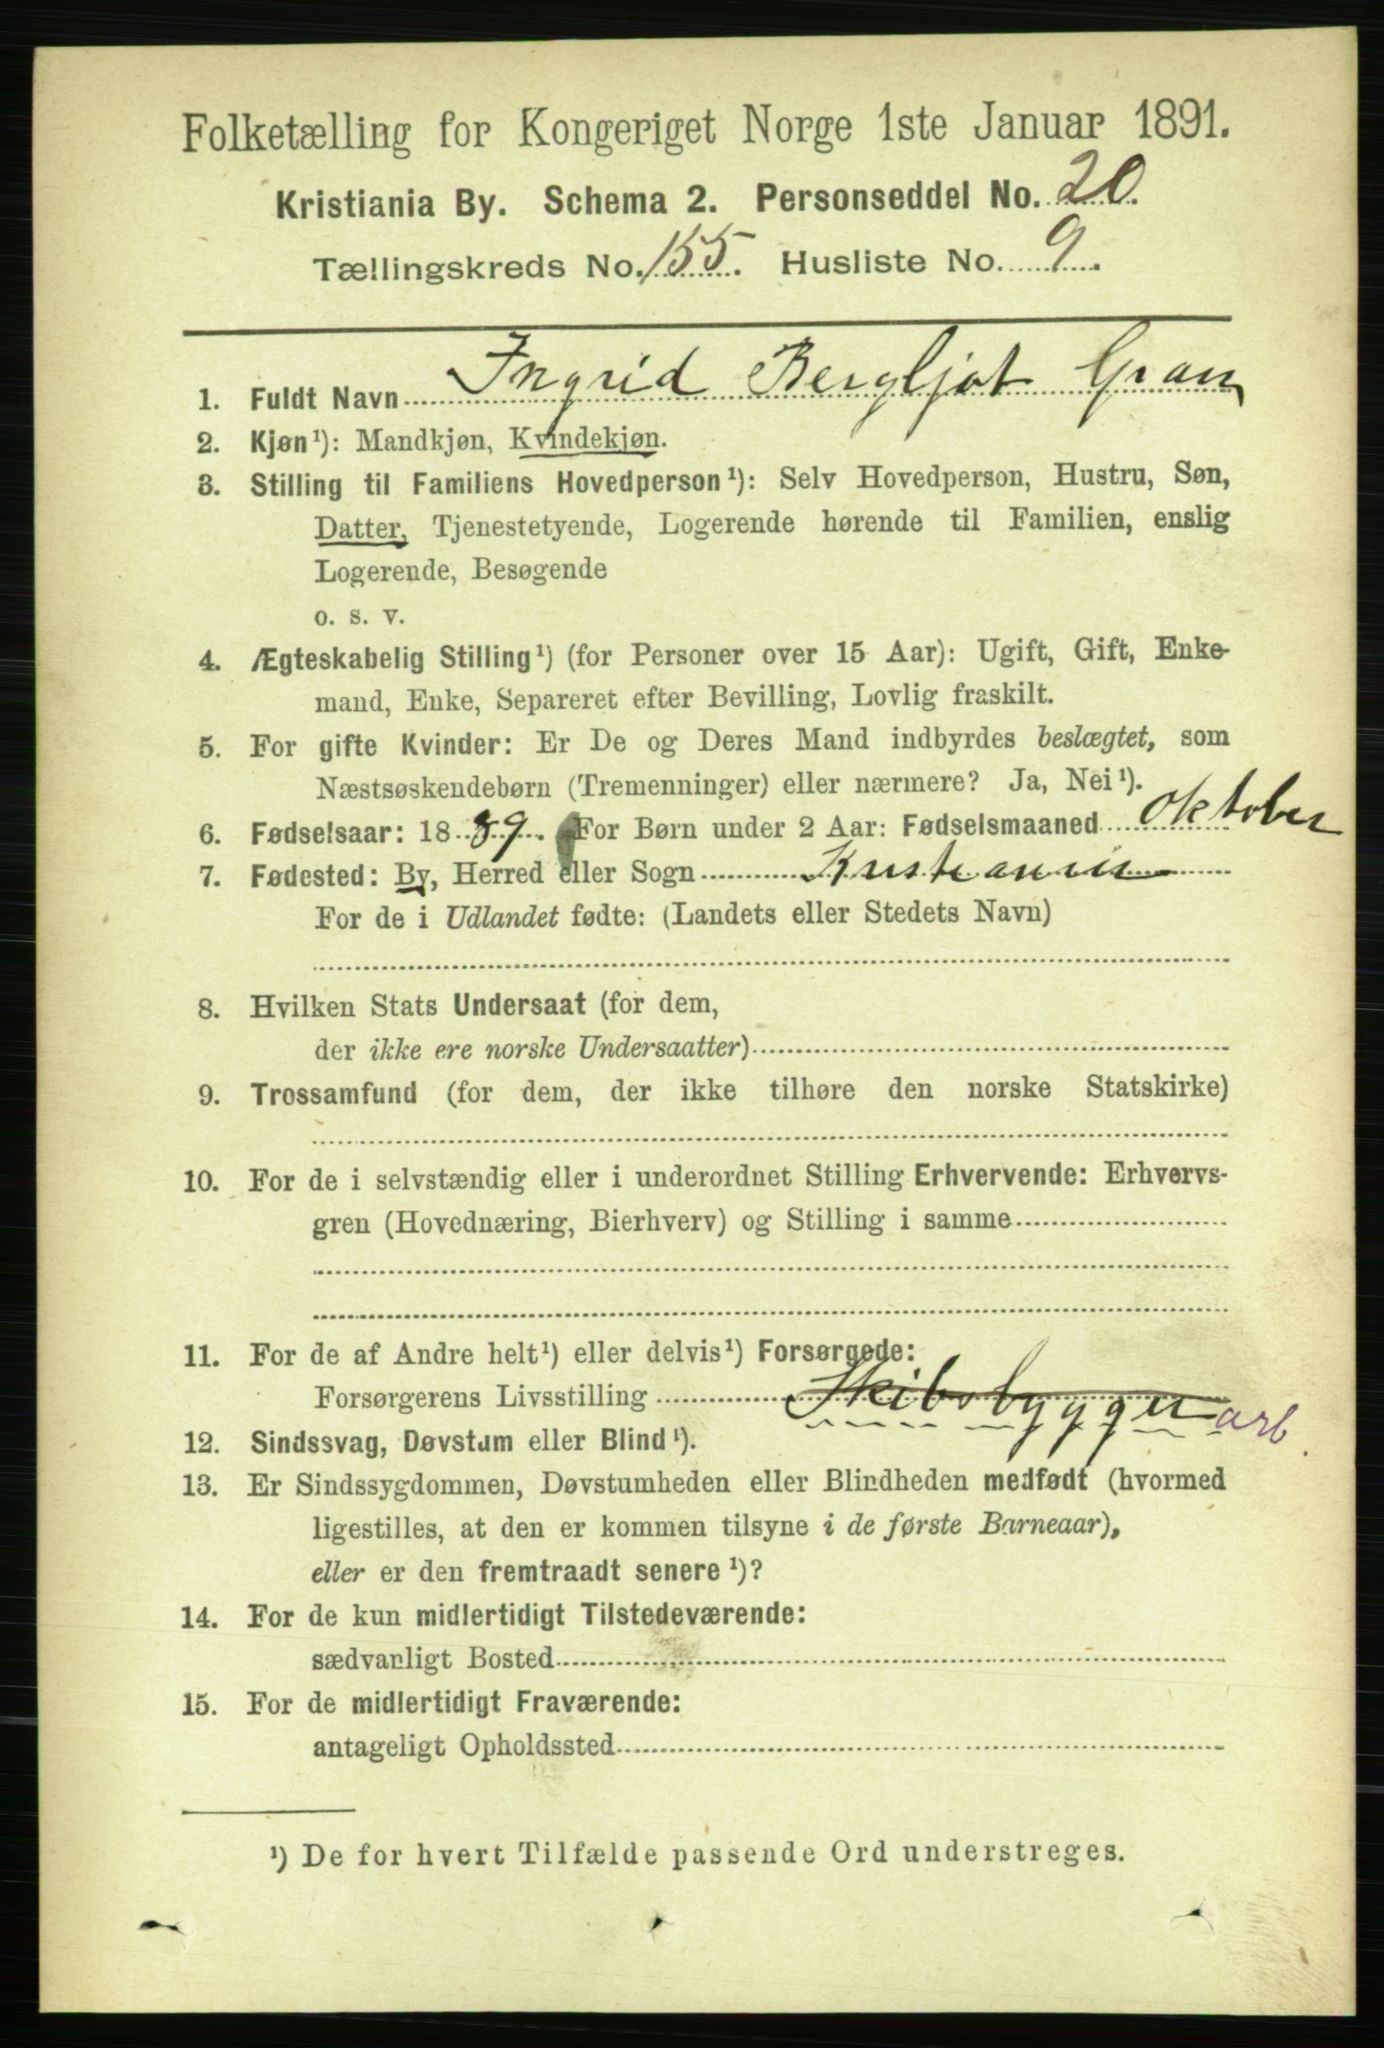 Folketælling for Kongeriget Norge 1ste Januar 1891.
Kristiania By. Schema 2. Personseddel No. 20.
Tællingskreds No. 155. Husliste No. 9.
1. Fuldt Navn Ingrid Bergljot Gran
2. Kjøn¹): Mandkjøn, Kvindekjøn.
3. Stilling til Familiens Hovedperson¹): Selv Hovedperson, Hustru, Søn,
Datter, Tjenestetyende, Logerende hørende til Familien, enslig
Logerende, Besøgende
o. s. v.
4. Ægteskabelig Stilling¹) (for Personer over 15 Aar): Ugift, Gift, Enke-
mand, Enke, Separeret efter Bevilling, Lovlig fraskilt.
5. For gifte Kvinder: Er De og Deres Mand indbyrdes beslægtet, som
Næstsøskendebørn (Tremenninger) eller nærmere? Ja, Nei¹).
6. Fødselsaar: 1889. For Børn under 2 Aar: Fødselsmaaned Oktober
7. Fødested: By, Herred eller Sogn Kristiania
For de i Udlandet fødte: (Landets eller Stedets Navn)
8. Hvilken Stats Undersaat (for dem,
der ikke ere norske Undersaatter)
9. Trossamfund (for dem, der ikke tilhøre den norske Statskirke)
10. For de i selvstændig eller i underordnet Stilling Erhvervende: Erhvervs-
gren (Hovednæring, Bierhverv) og Stilling i samme
11. For de af Andre helt¹) eller delvis¹) Forsørgede:
Forsørgerens Livsstilling Skibsbyggerarb
12. Sindssvag, Døvstum eller Blind¹).
13. Er Sindssygdommen, Døvstumheden eller Blindheden medfødt (hvormed
ligestilles, at den er kommen tilsyne i de første Barneaar),
eller er den fremtraadt senere¹)?
14. For de kun midlertidigt Tilstedeværende:
sædvanligt Bosted
15. For de midlertidigt Fraværende:
antageligt Opholdssted
¹) De for hvert Tilfælde passende Ord understreges.